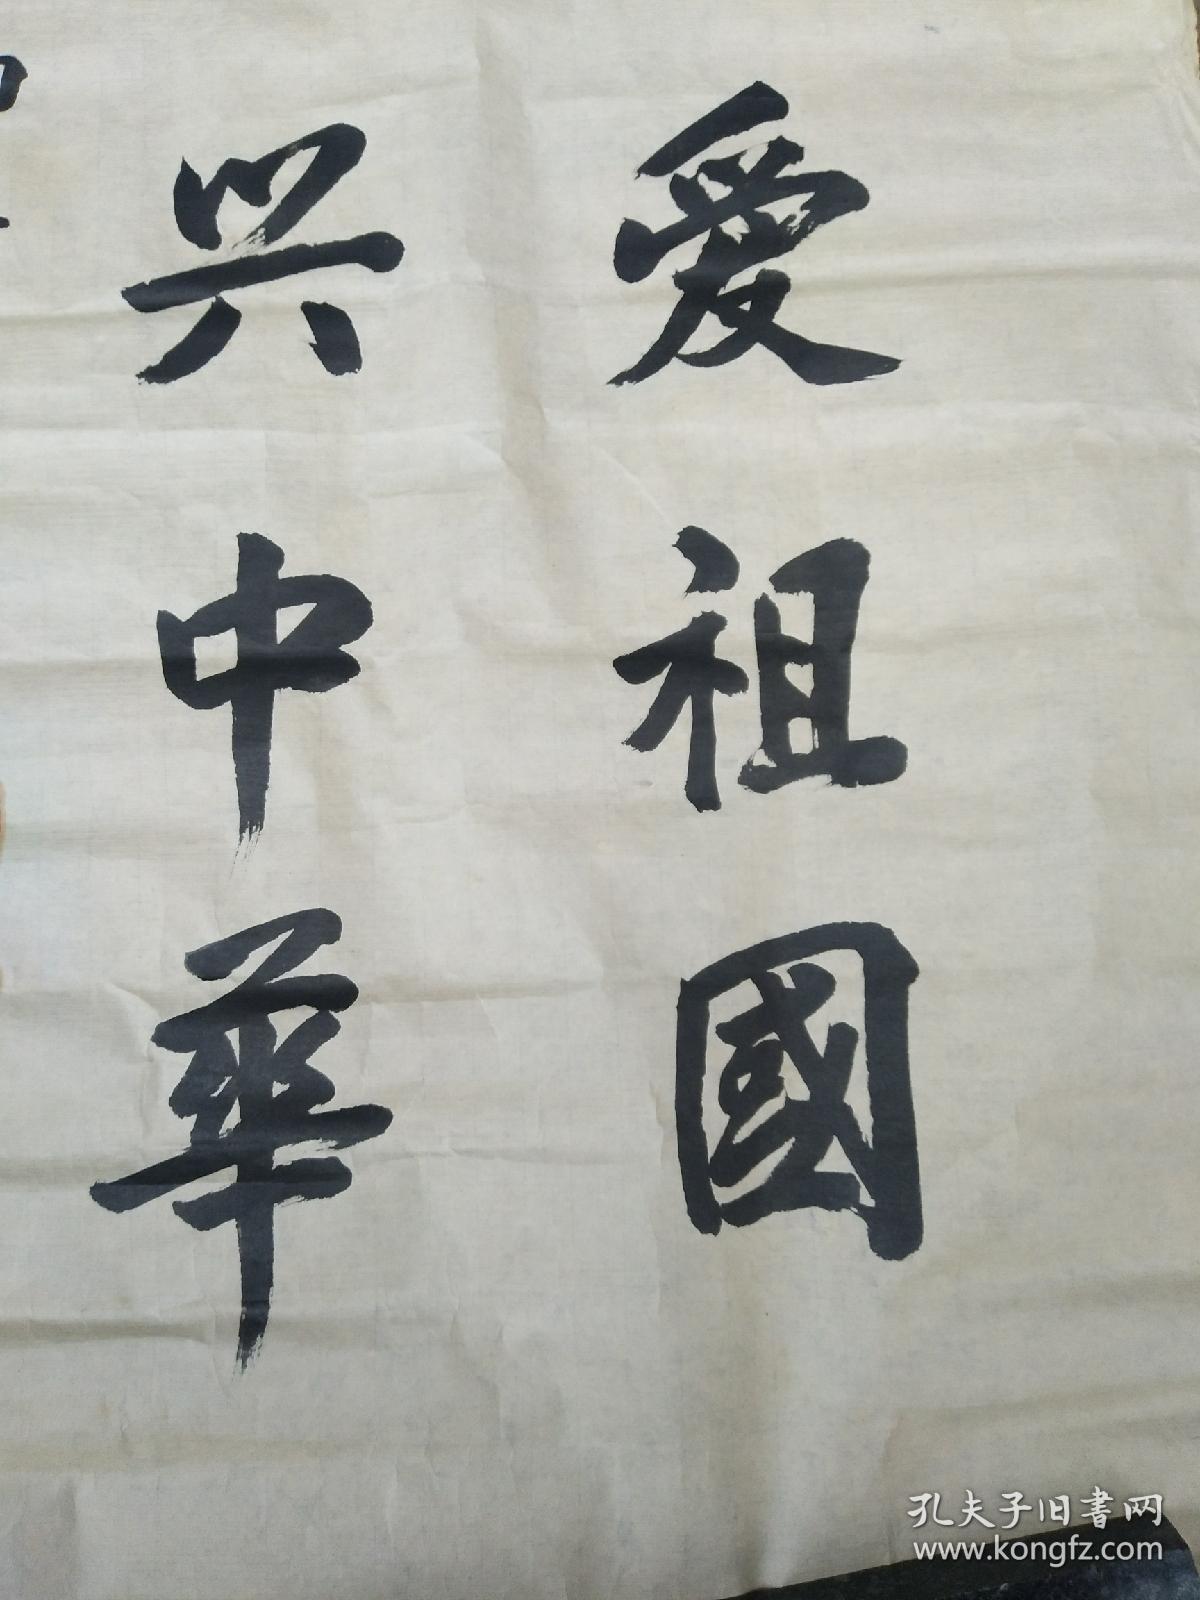 愛祖國
兴中華
孔夫子旧書网
www.kongfz.com